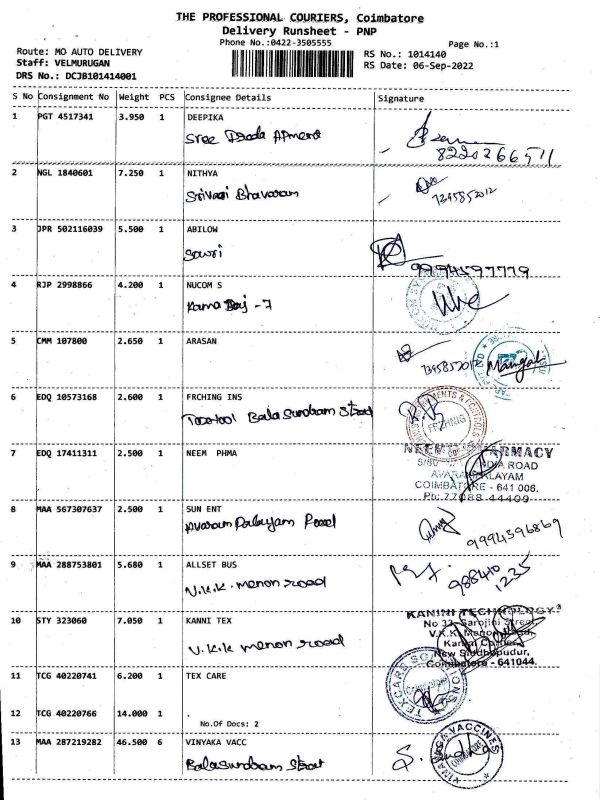 THE PROFESSIONAL COURIERS, Coimbatore
Delivery Runsheet - PNP
Phone No.:0422-3505555
Page No.:1
Route: MO AUTO DELIVERY
Staff: VELMURUGAN
DRS No.: DCJB101414001
RS No.: 1014140
RS Date: 06-Sep-2022
S No Consignment No Weight PCS Consignee Details Signature
1 PGT 4517341 3.950 1 DEEPIKA
Sree
8220266511
2 NGL 1840601 7.250 1 NITHYA
Srivari Bhavanam
7395852012
3 JPR 502116039 5.500 1 ABILOW
Gowri
9994597779
4 RJP 2998866 4.200 1 NUCOM S
Kama Raj - 7
5 CMM 107800 2.650 1 ARASAN
7395852012 Mangal
6 EDQ 10573168 2.600 1 FRCHING INS
Bala Sundram Street
7 EDQ 17411311 2.500 1 NEEM PHMA
PHARMACY
ROAD
COIMBATORE - 641 006.
Ph: 77088 44409
8 MAA 567307637 2.500 1 SUN ENT
Avaram Palayam Road
9994396869
9 MAA 288753801 5.680 1 ALLSET BUS
V.K.K. menon road
988410
1235
10 STY 323060 7.050 1 KANNI TEX
V.K.K menon road
KANINI TECHNOLOGY
No 33, Sarojini Street,
V.K.K. Menon Road,
New Siddhapudur,
Coimbatore - 641044.
11 TCG 40220741 6.200 1 TEX CARE
TEXCARE SOLUTIONS
12 TCG 40220766 14.000 1 .
No.Of Docs: 2
13 MAA 287219282 46.500 6 VINYAKA VACC
Balasundram Street
VINAYAGA VACCINES